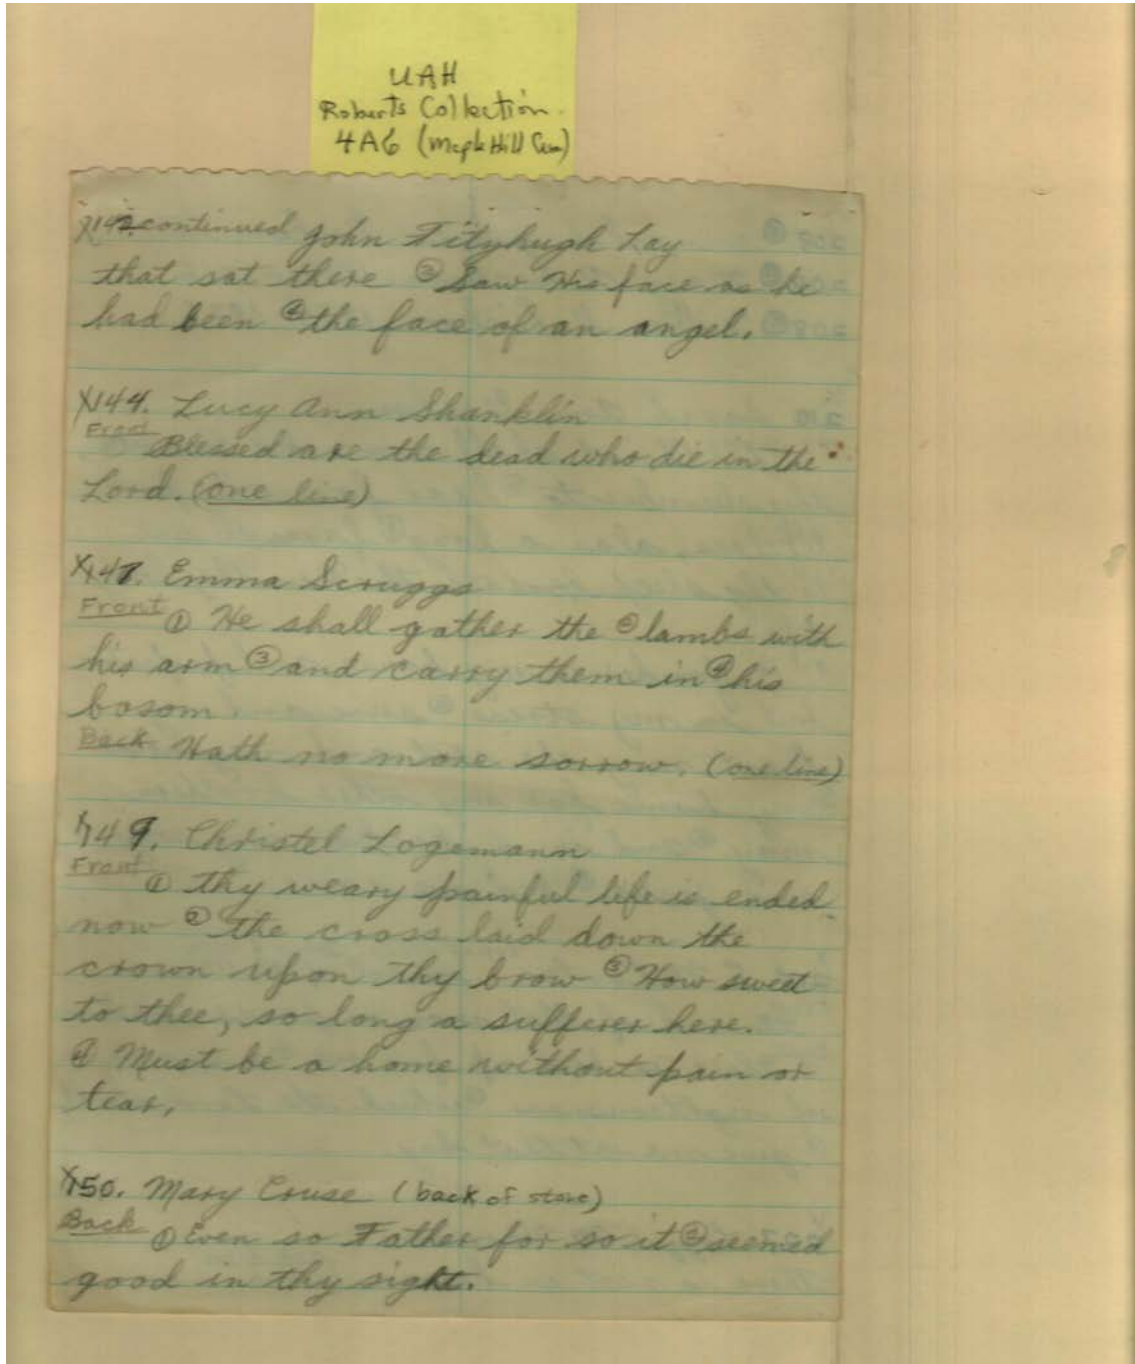 UAH
Roberts Collection
4A6 (Maple Hill Cem)
142 continued John Fitzhugh Lay
that sat there ③ Saw His face as he
had been ④ the face of an angel.
X144. Lucy Ann Shanklin
Front
Blessed are the dead who die in the
Lord. (one line)
X147. Emma Scruggs
Front ① He shall gather the ② lambs with
his arm ③ and carry them in ④ his
bosom.
Back Hath no more sorrow. (one line)
149. Christel Logemann
Front ① Thy weary painful life is ended
now ② the cross laid down the
crown upon thy brow ③ How sweet
to thee, so long a sufferer here.
④ Must be a home without pain or
tear.
X150. Mary Cruse (back of stone)
Back ① Even so Father for so it ② seemed
good in thy sight.